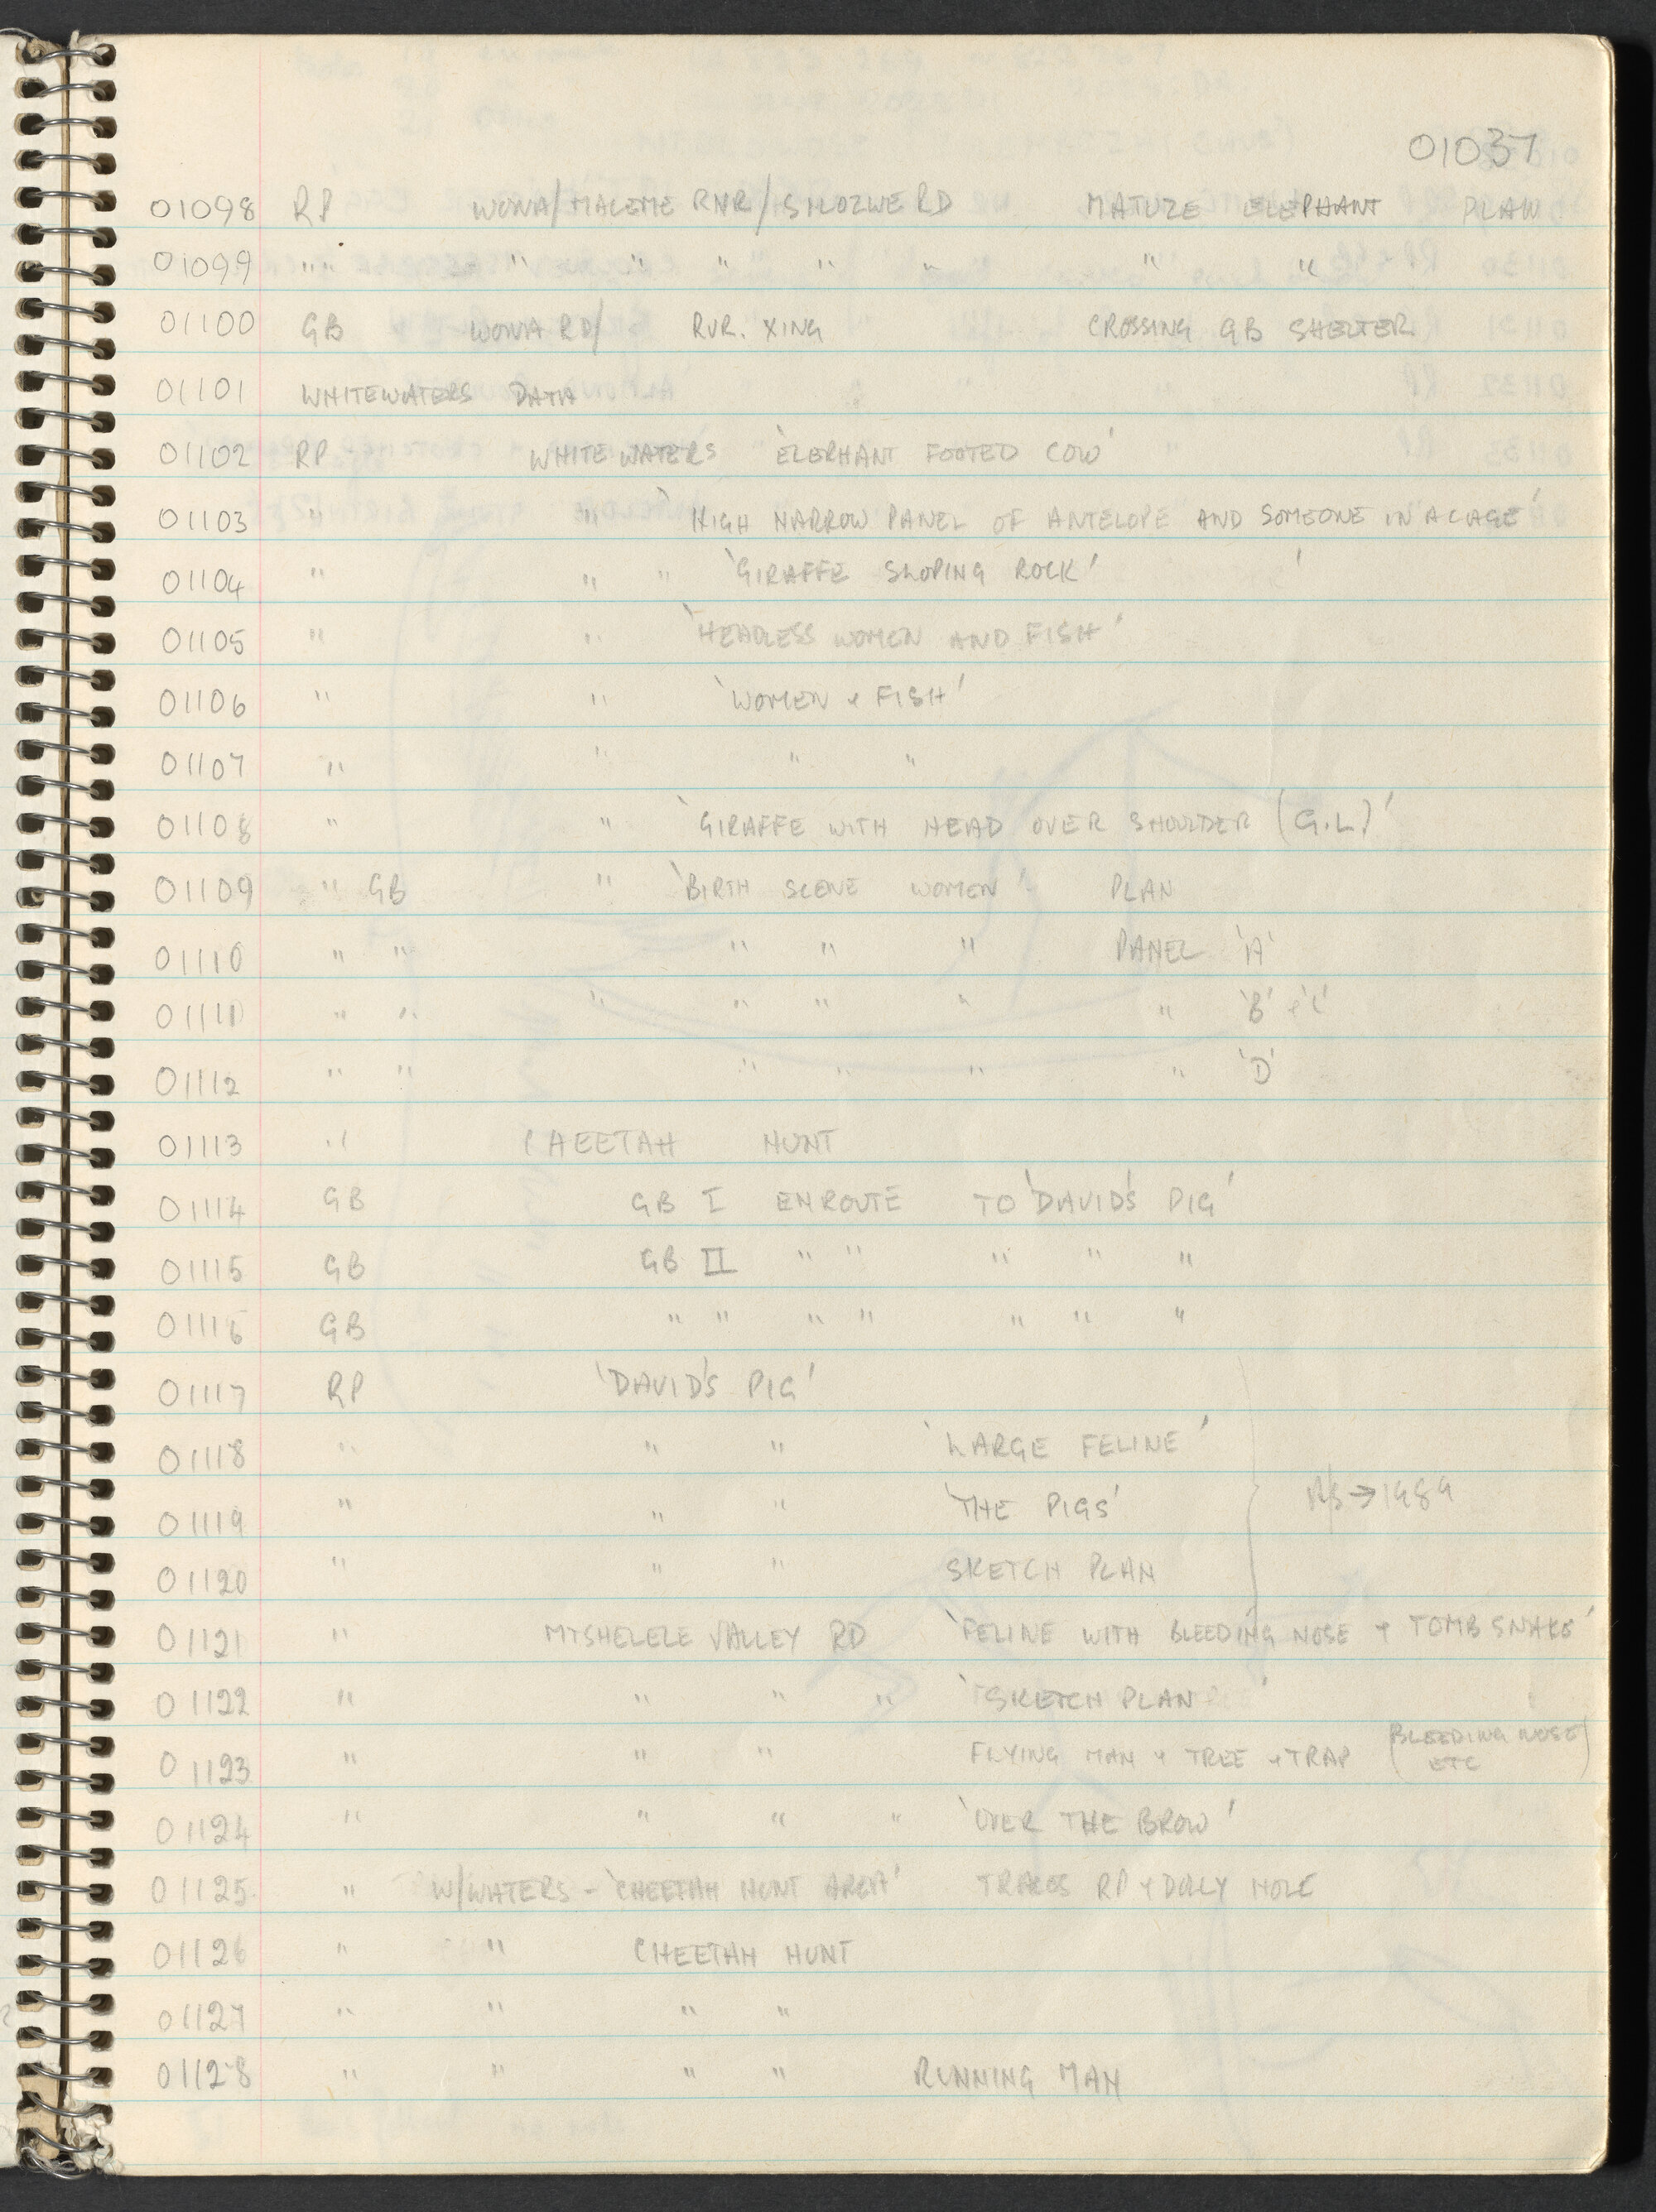 01037
01098 RP WOWA/MALEME RNR/SILOZWE RD MATURE ELEPHANT PLAN
01099 " " " " " " " " "
01100 GB WOWA RD/ RVR. XING CROSSING GB SHELTER
01101 WHITEWATERS DATA
01102 RP WHITEWATERS 'ELEPHANT FOOTED COW'
01103 " " 'HIGH NARROW PANEL OF ANTELOPE AND SOMEONE IN A CAGE'
01104 " " " 'GIRAFFE SLOPING ROCK' '
01105 " " 'HEADLESS WOMEN AND FISH'
01106 " " 'WOMEN & FISH'
01107 " " " "
01108 " " 'GIRAFFE WITH HEAD OVER SHOULDER (G.L)'
01109 " GB " 'BIRTH SCENE WOMEN' PLAN
01110 " " " " " PANEL 'A'
01111 " " " " " " " 'B' & 'C'
01112 " " " " " " 'D'
01113 " CHEETAH HUNT
01114 GB GB I ENROUTE TO 'DAVID'S PIG'
01115 GB GB II " " " " "
01116 GB " " " " " " "
01117 RP 'DAVID'S PIG'
01118 " " " 'LARGE FELINE'
01119 " " " 'THE PIGS' → 1989
01120 " " " SKETCH PLAN
01121 " MTSHELELE VALLEY RD 'FELINE WITH BLEEDING NOSE & TOMB SNAKE'
01122 " " " " 'SKETCH PLAN'
01123 " " " FLYING MAN & TREE & TRAP (BLEEDING NOSE ETC)
01124 " " " " 'OVER THE BROW'
01125 " W/WATERS - 'CHEETAH HUNT AREA' TRACES RP & DOLLY HOLE
01126 " " CHEETAH HUNT
01127 " " " "
01128 " " " " RUNNING MAN